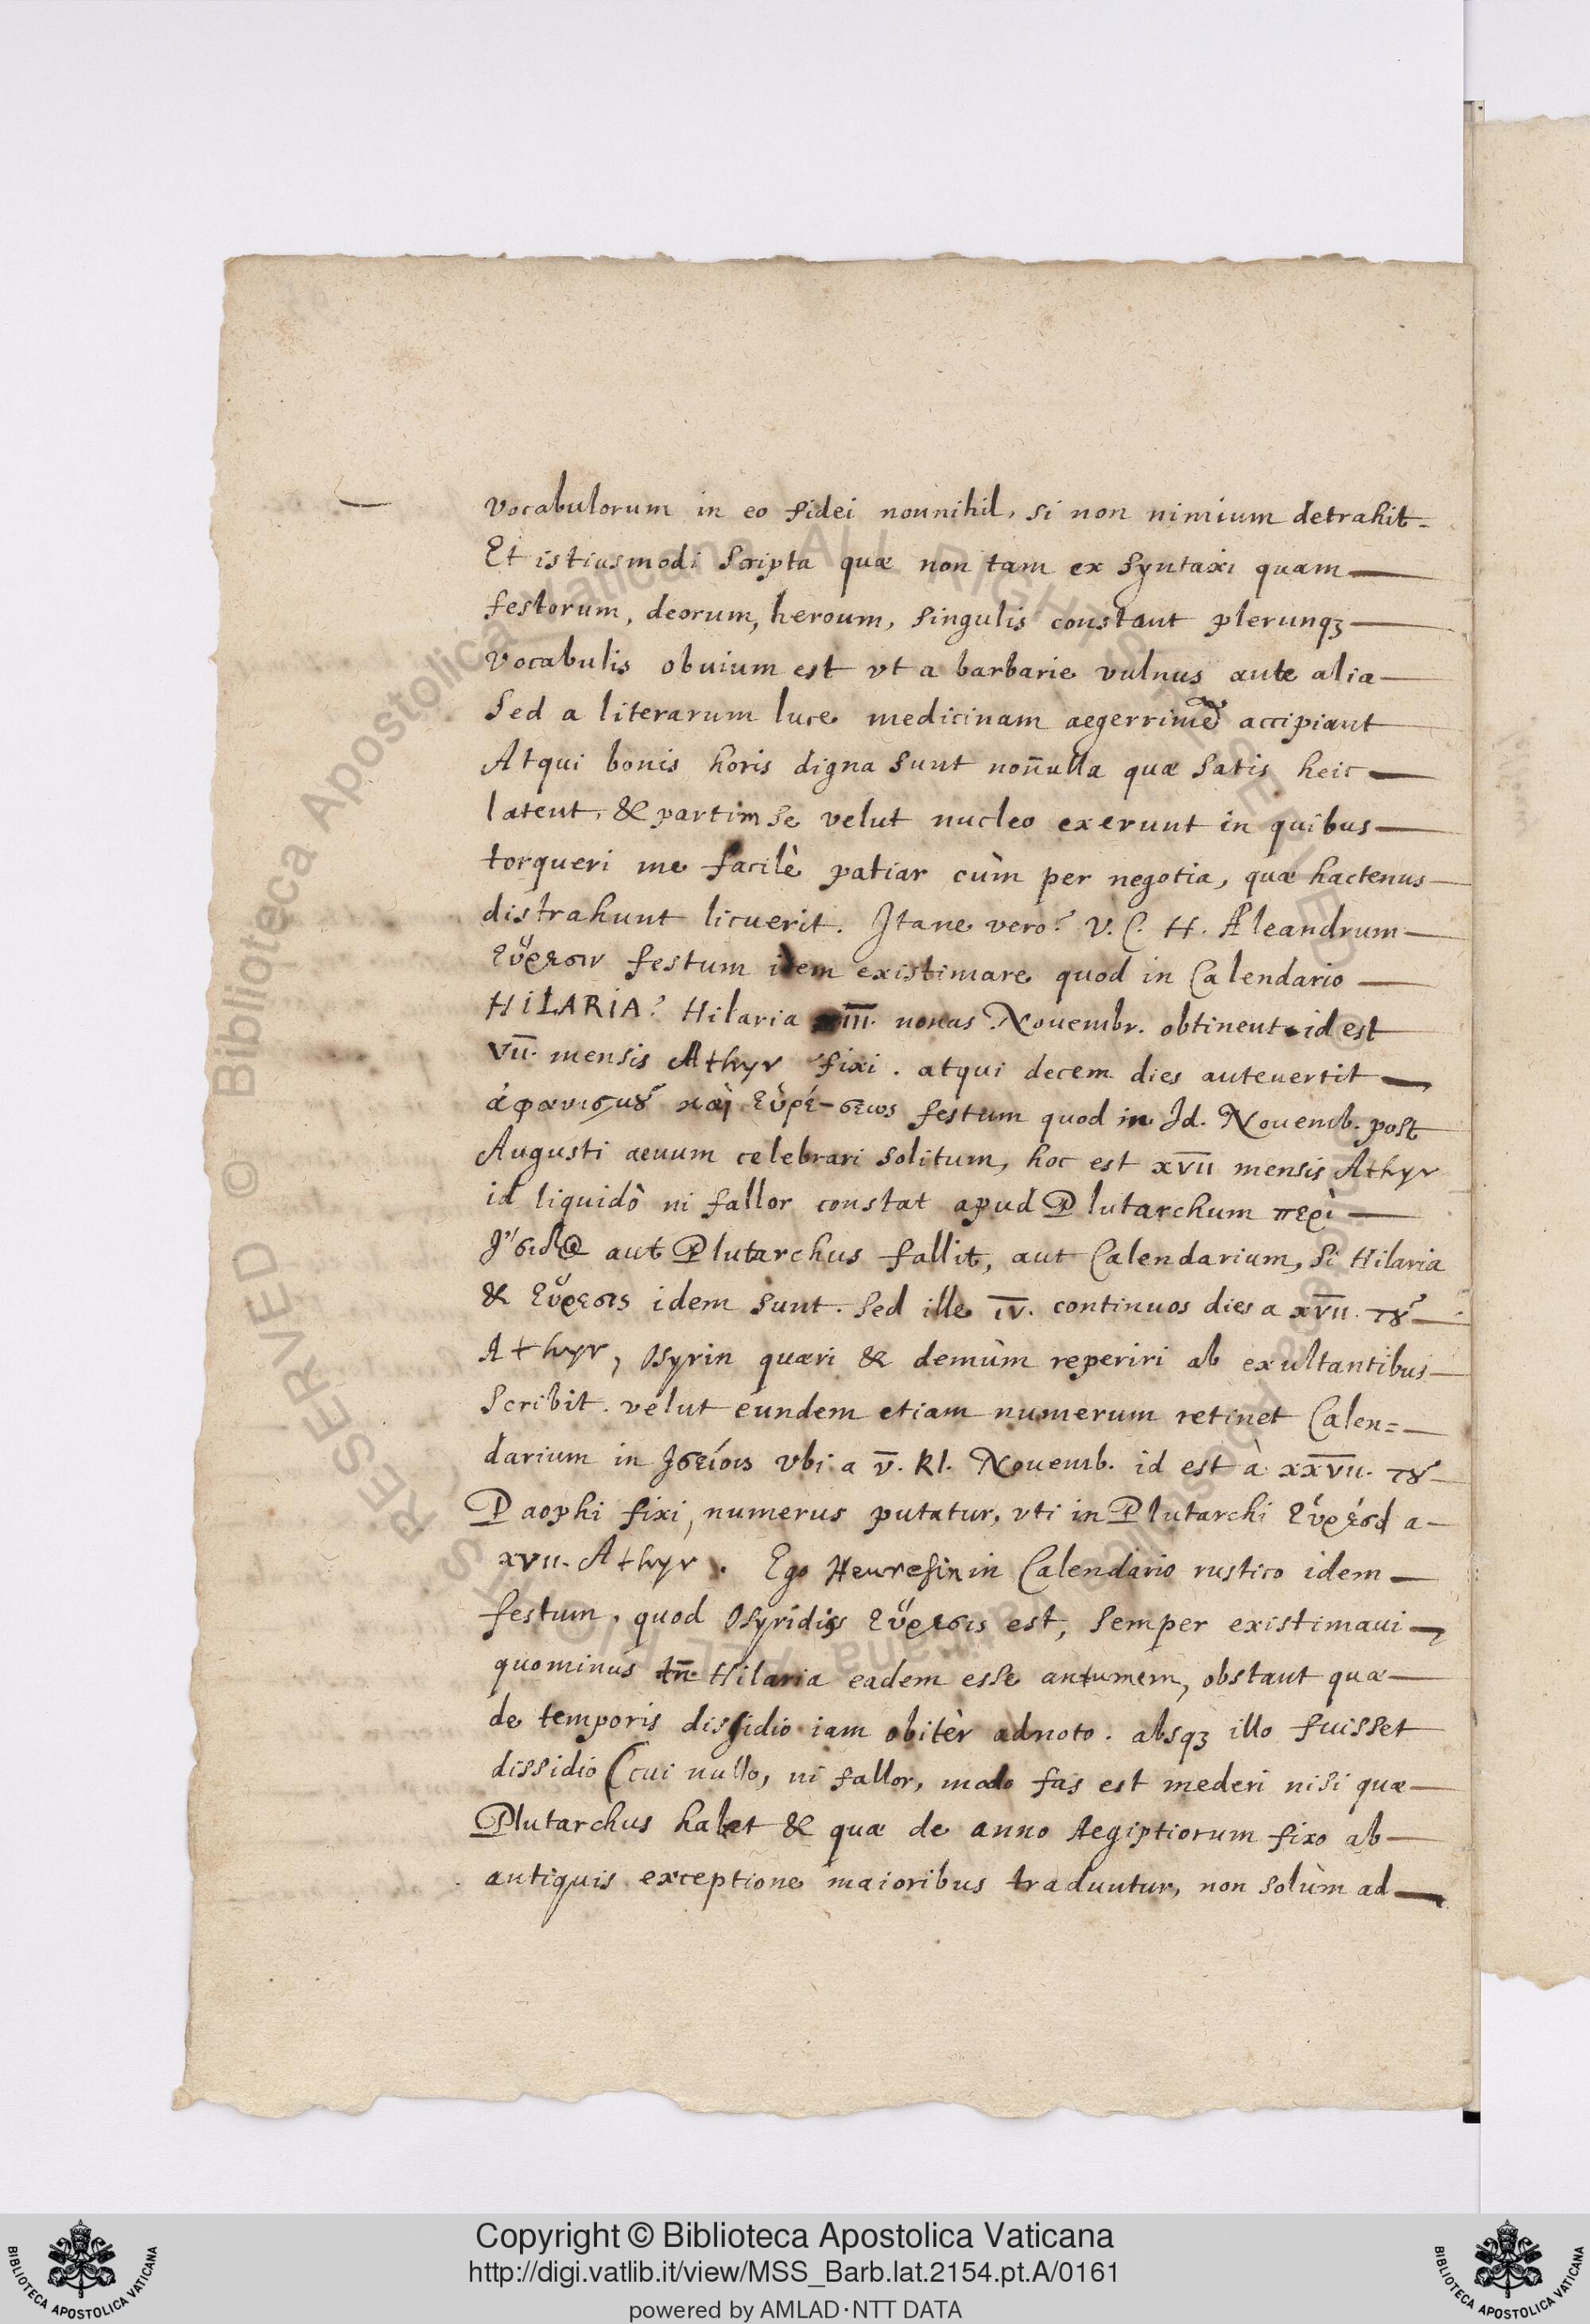 vocabulorum in eo fidei nonnihil, si non nimium detrahit.
Et istiusmodi scripta quæ non tam ex syntaxi quam
festorum, deorum, heroum, singulis constant plerunqꝫ
vocabulis obuium est vt a barbarie vulnus ante alia
Sed a literarum luce medicinam aegerrimè accipiant
Atqui bonis horis digna sunt non̄ulla quæ satis heic
latent, & partim se velut nucleo exerunt in quibus
torqueri me facilè patiar cùm per negotia, quæ hactenus
distrahunt licuerit. Itane vero? V. C. H. Aleandrum
εὕρεσιν festum idem existimare quod in Calendario
HILARIA? Hilaria III. nonas Nouembr. obtinent id est
VII. mensis Athyr fixi. atqui decem dies anteuertit
ἀφανισμοῦ καὶ εὑρέ-σεως festum quod in Id. Nouemb. post
Augusti aeuum celebrari solitum, hoc est XVII mensis Athyr
id liquidò ni fallor constat apud Plutarchum περὶ
Ἴσιδος aut Plutarchus fallit, aut Calendarium, si Hilaria
& εὕρεσις idem sunt. Sed ille IV. continuos dies a XVII. τοῦ
Athyr, Osyrin quæri & demùm reperiri ab exultantibus
Scribit. velut eundem etiam numerum retinet Calen=
darium in Ισείοις vbi a V. Kl. Nouemb. id est à XXVII. τοῦ
Paophi fixi, numerus putatur, vti in Plutarchi εὑρέσει a
XVII. Athyr. Ego Heuresin in Calendario rustico idem
festum, quod Osyridis εὕρεσις est, semper existimaui
quominus tn̄ Hilaria eadem esse antumem, obstant quæ
de temporis dissidio iam obitèr adnoto. absqꝫ illo fuisset
dissidio (cui nullo, ni fallor, modo fas est mederi nisi quæ
Plutarchus habet & quæ de anno Aegiptiorum fixo ab
antiquis exceptione maioribus traduntur, non solùm ad
Copyright © Biblioteca Apostolica Vaticana
http://digi.vatlib.it/view/MSS_Barb.lat.2154.pt.A/0161
powered by AMLAD·NTT DATA
BIBLIOTECA APOSTOLICA VATICANA
BIBLIOTECA APOSTOLICA VATICANA